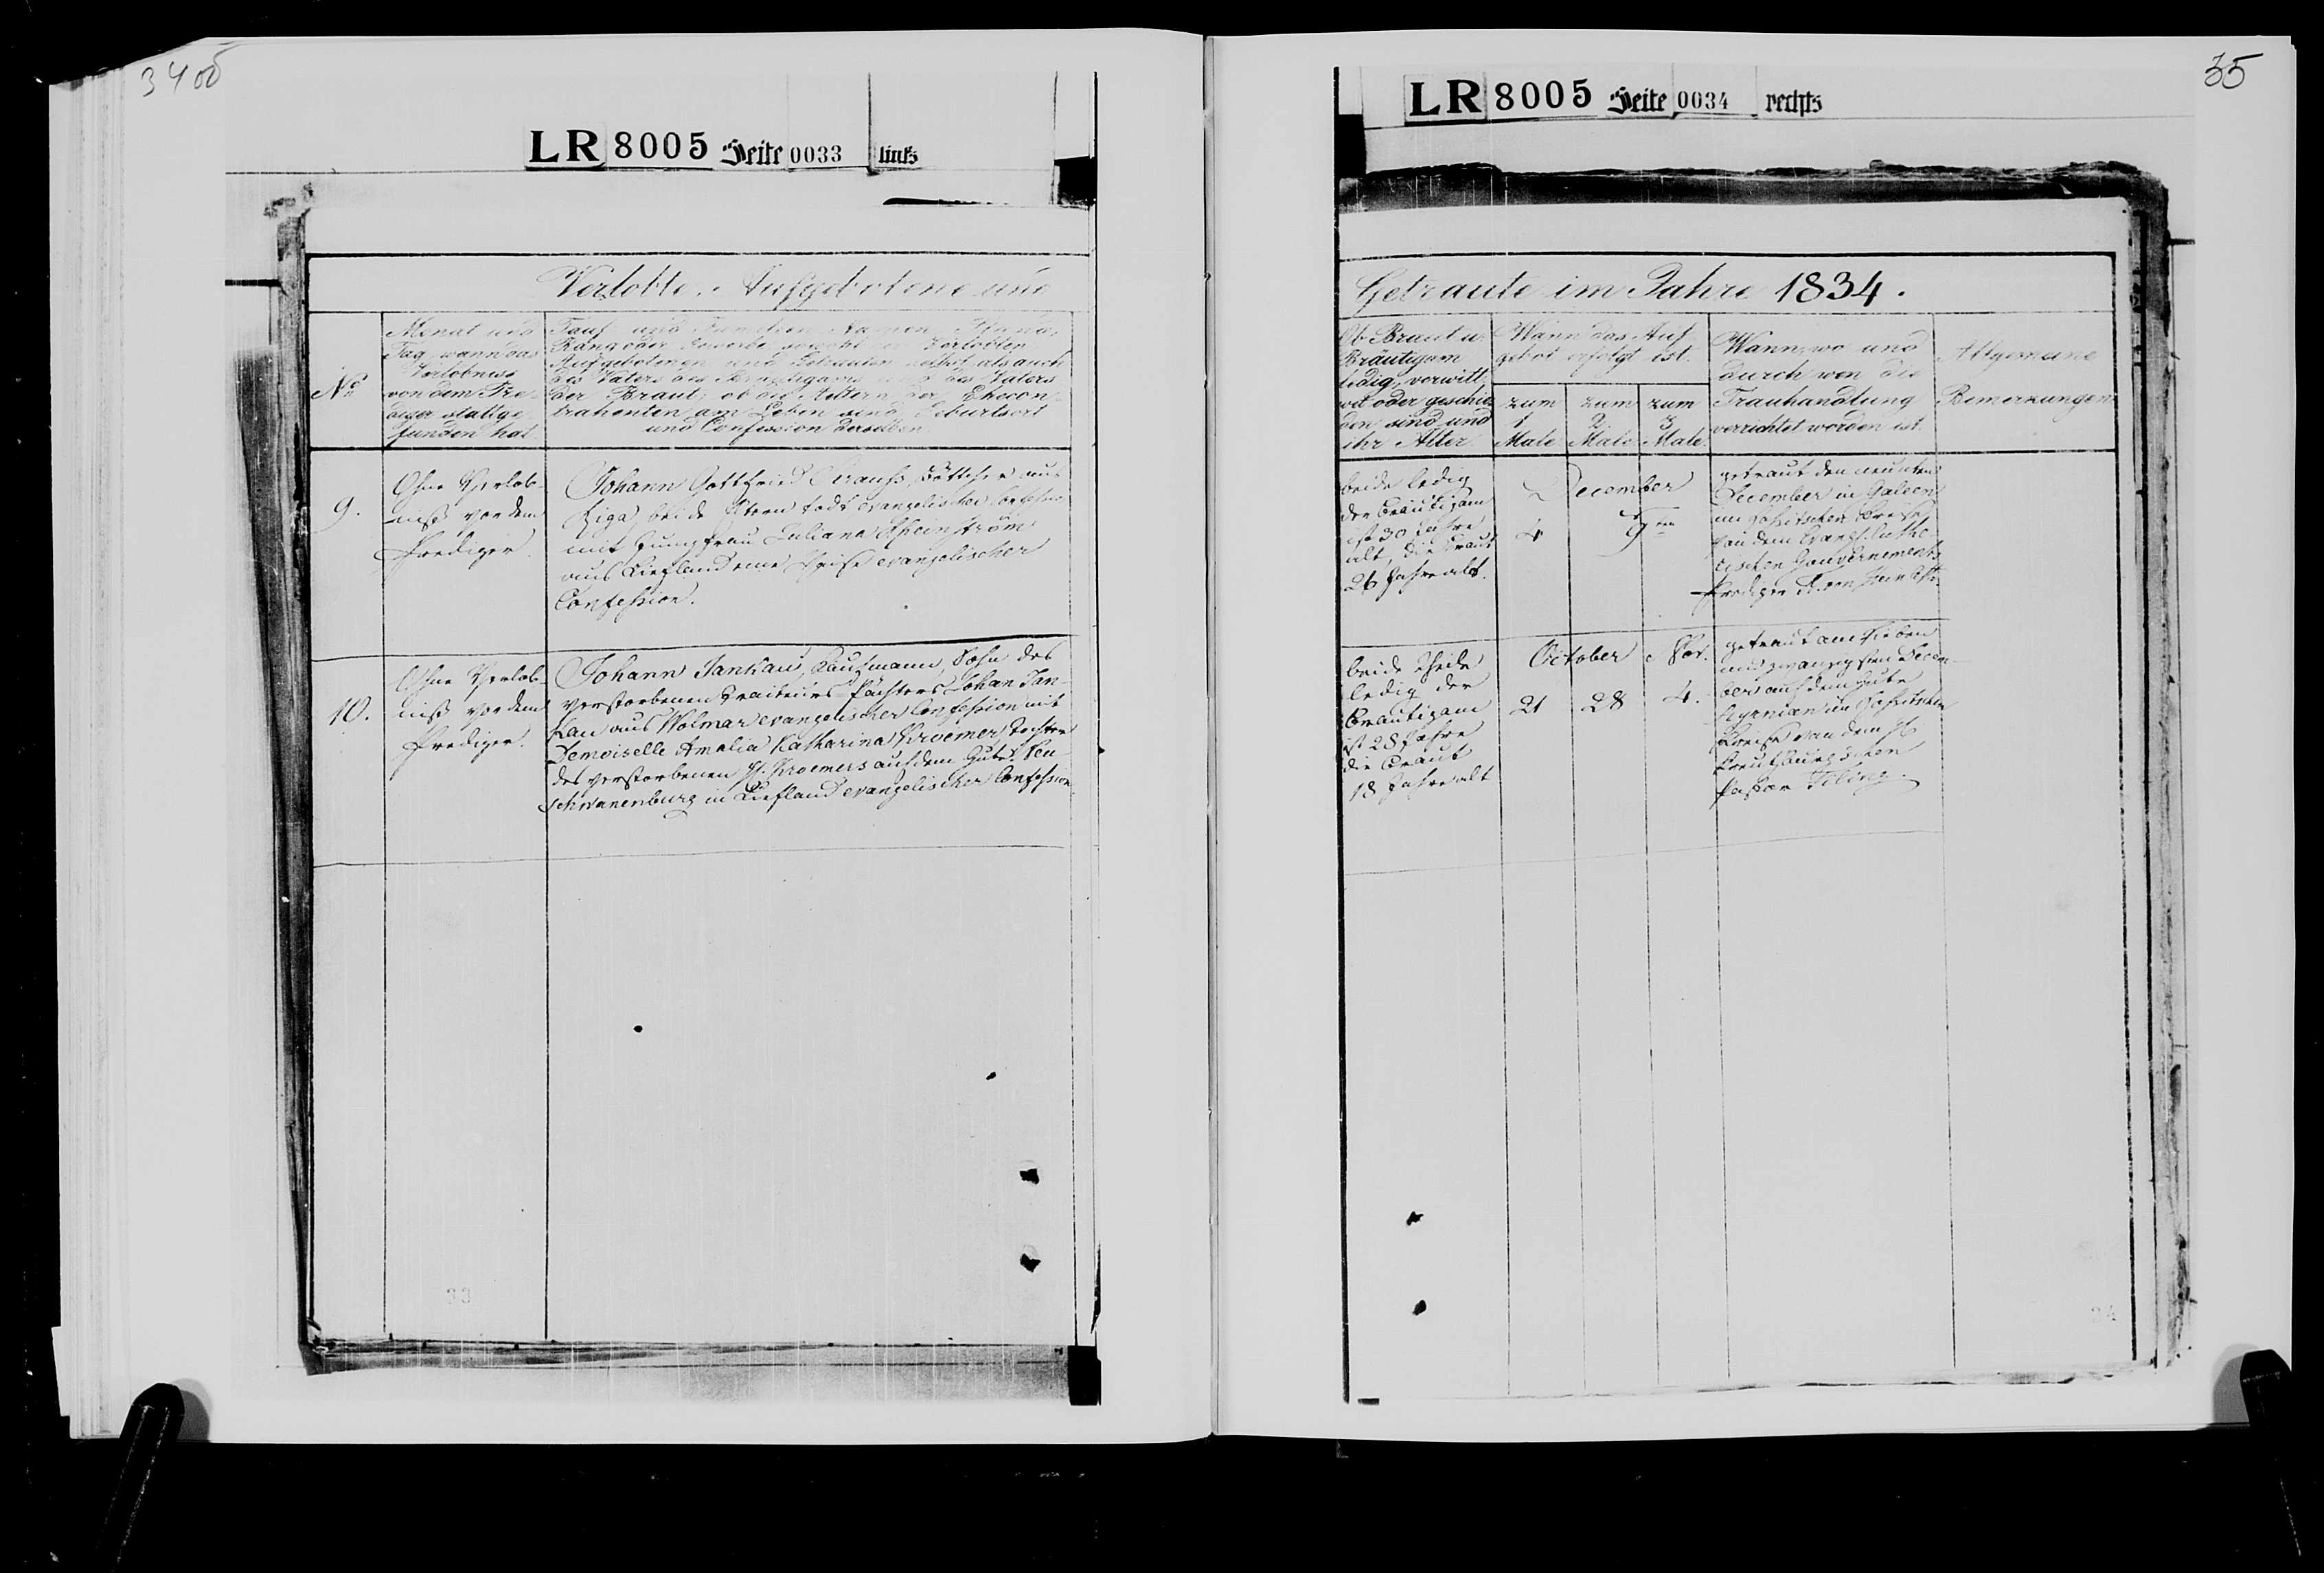 34 об
LR 8005 Seite 0033 links
Verlobte, Aufgebotene und
No
Monat und
Tag, wann das
Verlobniss
von dem Pre-
diger stattge
funden hat
Tauf und Familien Namen, Stand,
Rang oder Gewerbe sowohl der Verlobten
Aufgebotenen und Getrauten selbst, als auch
des Vaters des Bräutigams und des Vaters
der Braut; ob die Aeltern der Ehecon-
trahenten am Leben sind, Geburtsort
und Confession derselben
9.
Ohne Verlöb-
niß vor dem
Prediger.
Johann Gottfried Krauss, Böttcher aus
Riga, beide Eltern todt evangelischer
mit Jungfrau Juliana
aus Liefland eine Waise evangelischer
Confession.
10.
Ohne Verlöb-
niß vor dem
Prediger.
Johann Jankau, Kaufmann, Sohn des
verstorbenen Traiteurs Pächters Johan Jan-
kau aus Wolmar evangelischer Confession mit
Demoiselle Amalia Katharina Kroemer Tochter
des verstorbenen H. Kroemers auf dem Gute Neu
schwanenburg in Liefland evangelischer Confession
33
35
LR 8005 Seite 0034 rechts
Getraute im Jahre 1834.
Ob Braut u.
Bräutigam
ledig, verwitt,
wet oder geschie
den sind und
ihr Alter.
Wann das Auf
gebot erfolgt ist.
zum 1 Male
zum 2 Male
zum 3 Male.
Wann, wo und
durch wen die
Trauhandlung
verrichtet worden ist.
Allgemeine
Bemerkungen
beide ledig
der Bräutigam
ist 30 Jahre
alt, die Braut
26 Jahre alt.
December
4 9ten
getraut den neunten
December in Galeen
im Kreise
von dem Evangl. Luthe-
rischen Gouvernements
Prediger
beide Theile
ledig der
Bräutigam
ist 28 Jahre
die Braut
18 Jahre alt
October Nov.
21 28 4.
getraut am sieben
und zwanzigsten Decem-
ber auf dem Gute
im
Kreise von dem H.
Kreutzburgschen
Pastor Tiling.
34